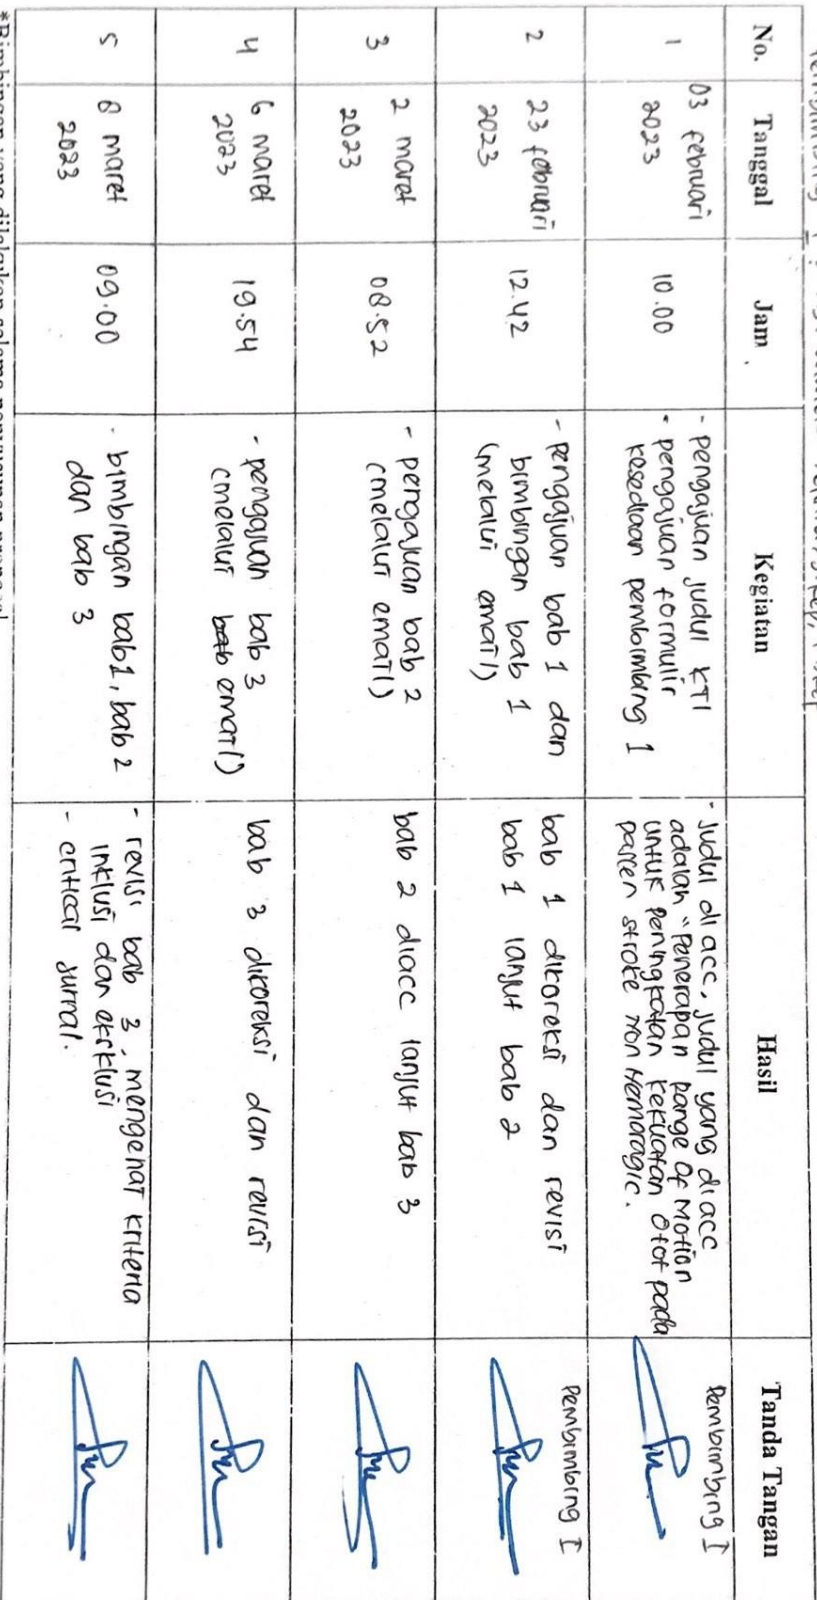 No. Tanggal Jam Kegiatan Hasil Tanda Tangan
1
03 februari
2023
10.00
- pengajuan judul KTI
- pengajuan formulir
kesediaan pembimbing 1
- Judul di acc, judul yang di acc
adalah "Penerapan Range Of Motion
untuk Peningkatan Kekuatan Otot pada
pasien stroke non Hemoragic.
Pembimbing I
2
23 februari
2023
12.42
- pengajuan bab 1 dan
bimbingan bab 1
(melalui email)
bab 1 dikoreksi dan revisi
bab 1 lanjut bab 2
Pembimbing I
3
2 maret
2023
08.52
- pengajuan bab 2
(melalui email)
bab 2 diacc lanjut bab 3
4
6 maret
2023
19.54
- pengajuan bab 3
(melalui bab email)
bab 3 dikoreksi dan revisi
5
8 maret
2023
09.00
- bimbingan bab 1, bab 2
dan bab 3
- revisi bab 3, mengenai kriteria
inklusi dan eksklusi
- critical jurnal.